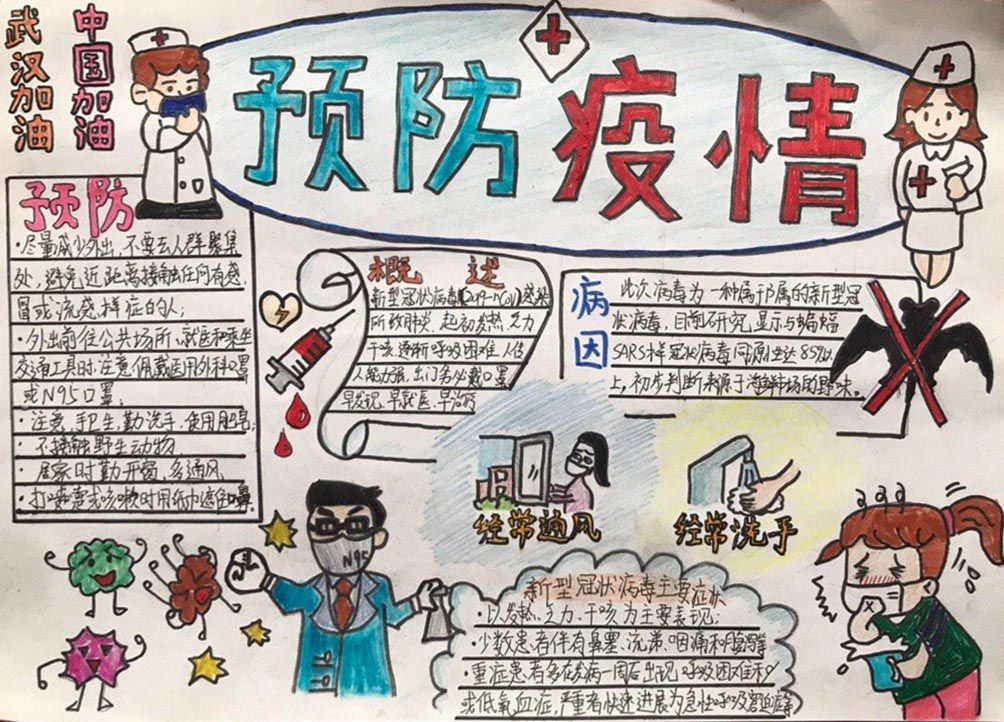 武汉加油
中国加油
预防疫情
预防
·尽量减少外出，不要去人群聚集
处，避免近距离接触任何有感
冒或流感样症的人；
·外出前往公共场所、就医和乘坐
交通工具时，注意佩戴医用外科口罩
或N95口罩；
·注意手卫生，勤洗手，使用肥皂；
·不接触野生动物
·居家时勤开窗，多通风
·打喷嚏或咳嗽时用纸巾遮住口鼻
概述
新型冠状病毒(2019-nCoV)感染
所致肺炎，起初发热、乏力
干咳逐渐呼吸困难，人传
人能力强，出门务必戴口罩
早发现、早就医、早治疗
病因
此次病毒为一种属于β属的新型冠
状病毒，目前研究显示与蝙蝠
SARS样冠状病毒同源性达85%以
上，初步判断来源于海鲜市场的野味。
经常通风
经常洗手
N95
新型冠状病毒主要症状
·以发热、乏力、干咳为主要表现；
·少数患者伴有鼻塞、流涕、咽痛和
·重症患者多在发病一周后出现呼吸困难和/
或低氧血症，严重者快速进展为急性呼吸窘迫症等